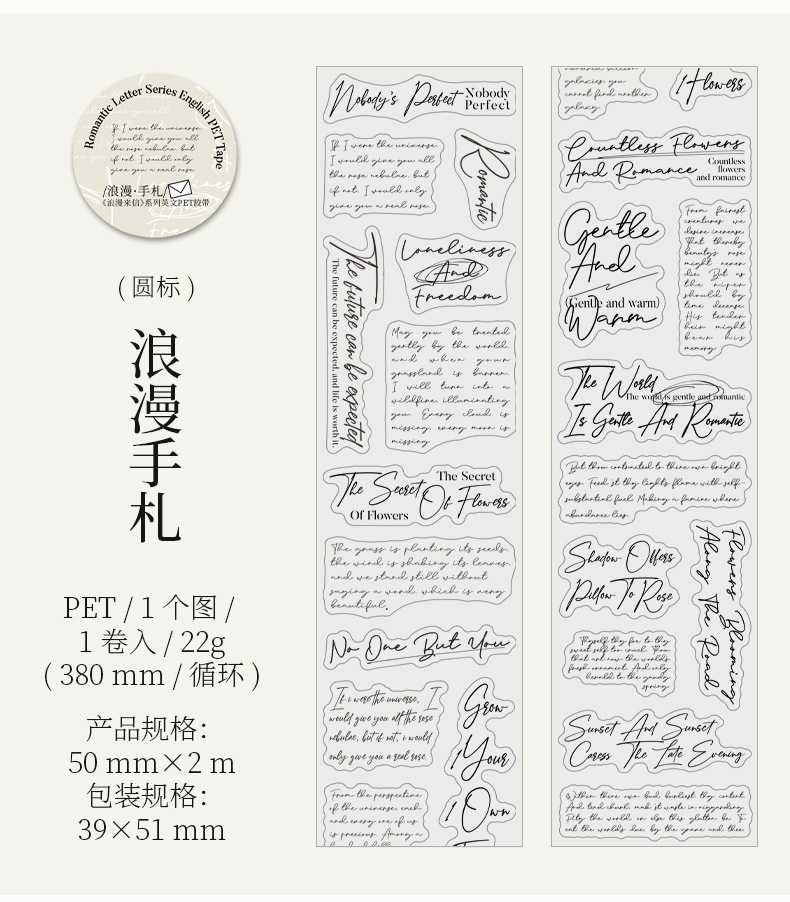 Romantic Letter Series English PET Tape
If I were the universe,
I would give you all
the rose nebulae, but
if not, I would only
give you a real rose.
/浪漫·手札/
《浪漫来信》系列英文PET胶带
(圆标)
浪漫手札
PET / 1 个图 /
1 卷入 / 22g
( 380 mm / 循环 )
产品规格:
50 mm×2 m
包装规格:
39×51 mm
Nobody's Perfect
Nobody
Perfect
If I were the universe,
I would give you all
the rose nebulae, but
if not, I would only
give you a real rose.
Romantic
The future can be expected
The future can be expected, and life is worth it.
Loneliness
And
Freedom
May you be treated
gently by the world,
and when your
grassland is barren,
I will turn into a
wildfire, illuminating
you. Every cloud is
missing, every moon is
missing
The Secret
The Secret
Of Flowers
Of Flowers
The grass is planting its seeds,
the wind is shaking its leaves,
and we stand still without
saying a word, which is very
beautiful.
No One But You
If i were the universe, I
would give you all the rose
nebulae, but if not, i would
only give you a real rose.
Grow
Your
Own
From the perspective
of the universe, each
and every one of us
is precious. Among a
galaxies, you
cannot find another
galaxy.
Flowers
Countless Flowers
And Romance
Countless
flowers
and romance
Gentle
And
(Gentle and warm)
Warm
From fairest
creatures we
desire increase,
That thereby
beauty's rose
might never
die, But as
the riper
should by
time decease,
His tender
heir might
bear his
memory:
The World
The world is gentle and romantic
Is Gentle And Romantic
But thou contracted to thine own bright
eyes, Feed'st thy lights flame with self-
substantial fuel, Making a famine where
abundance lies,
Shadow Offers
Pillow To Rose
Flowers Blooming
Along The Road
Thyself thy foe, to thy
sweet self too cruel: Thou
that art now the worlds
fresh ornament, And only
herald to the gaudy
spring,
Sunset And Sunset
Caress The Late Evening
Within thine own bud buriest thy content,
And tend churl, mak'st waste in niggarding.
Pity the world, or else this glutton be, T
eat the worlds due, by the grave and thee